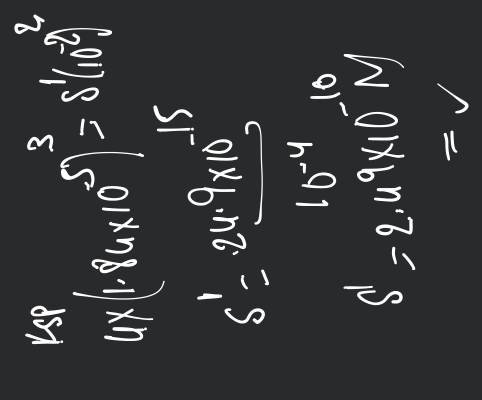 Ksp
4x(1.84x10⁻⁵)³ = S'(10⁻²)²
S' = 24.9x10⁻¹⁵
10⁻⁴
S' = 2.49x10⁻¹⁰ M
= ✓